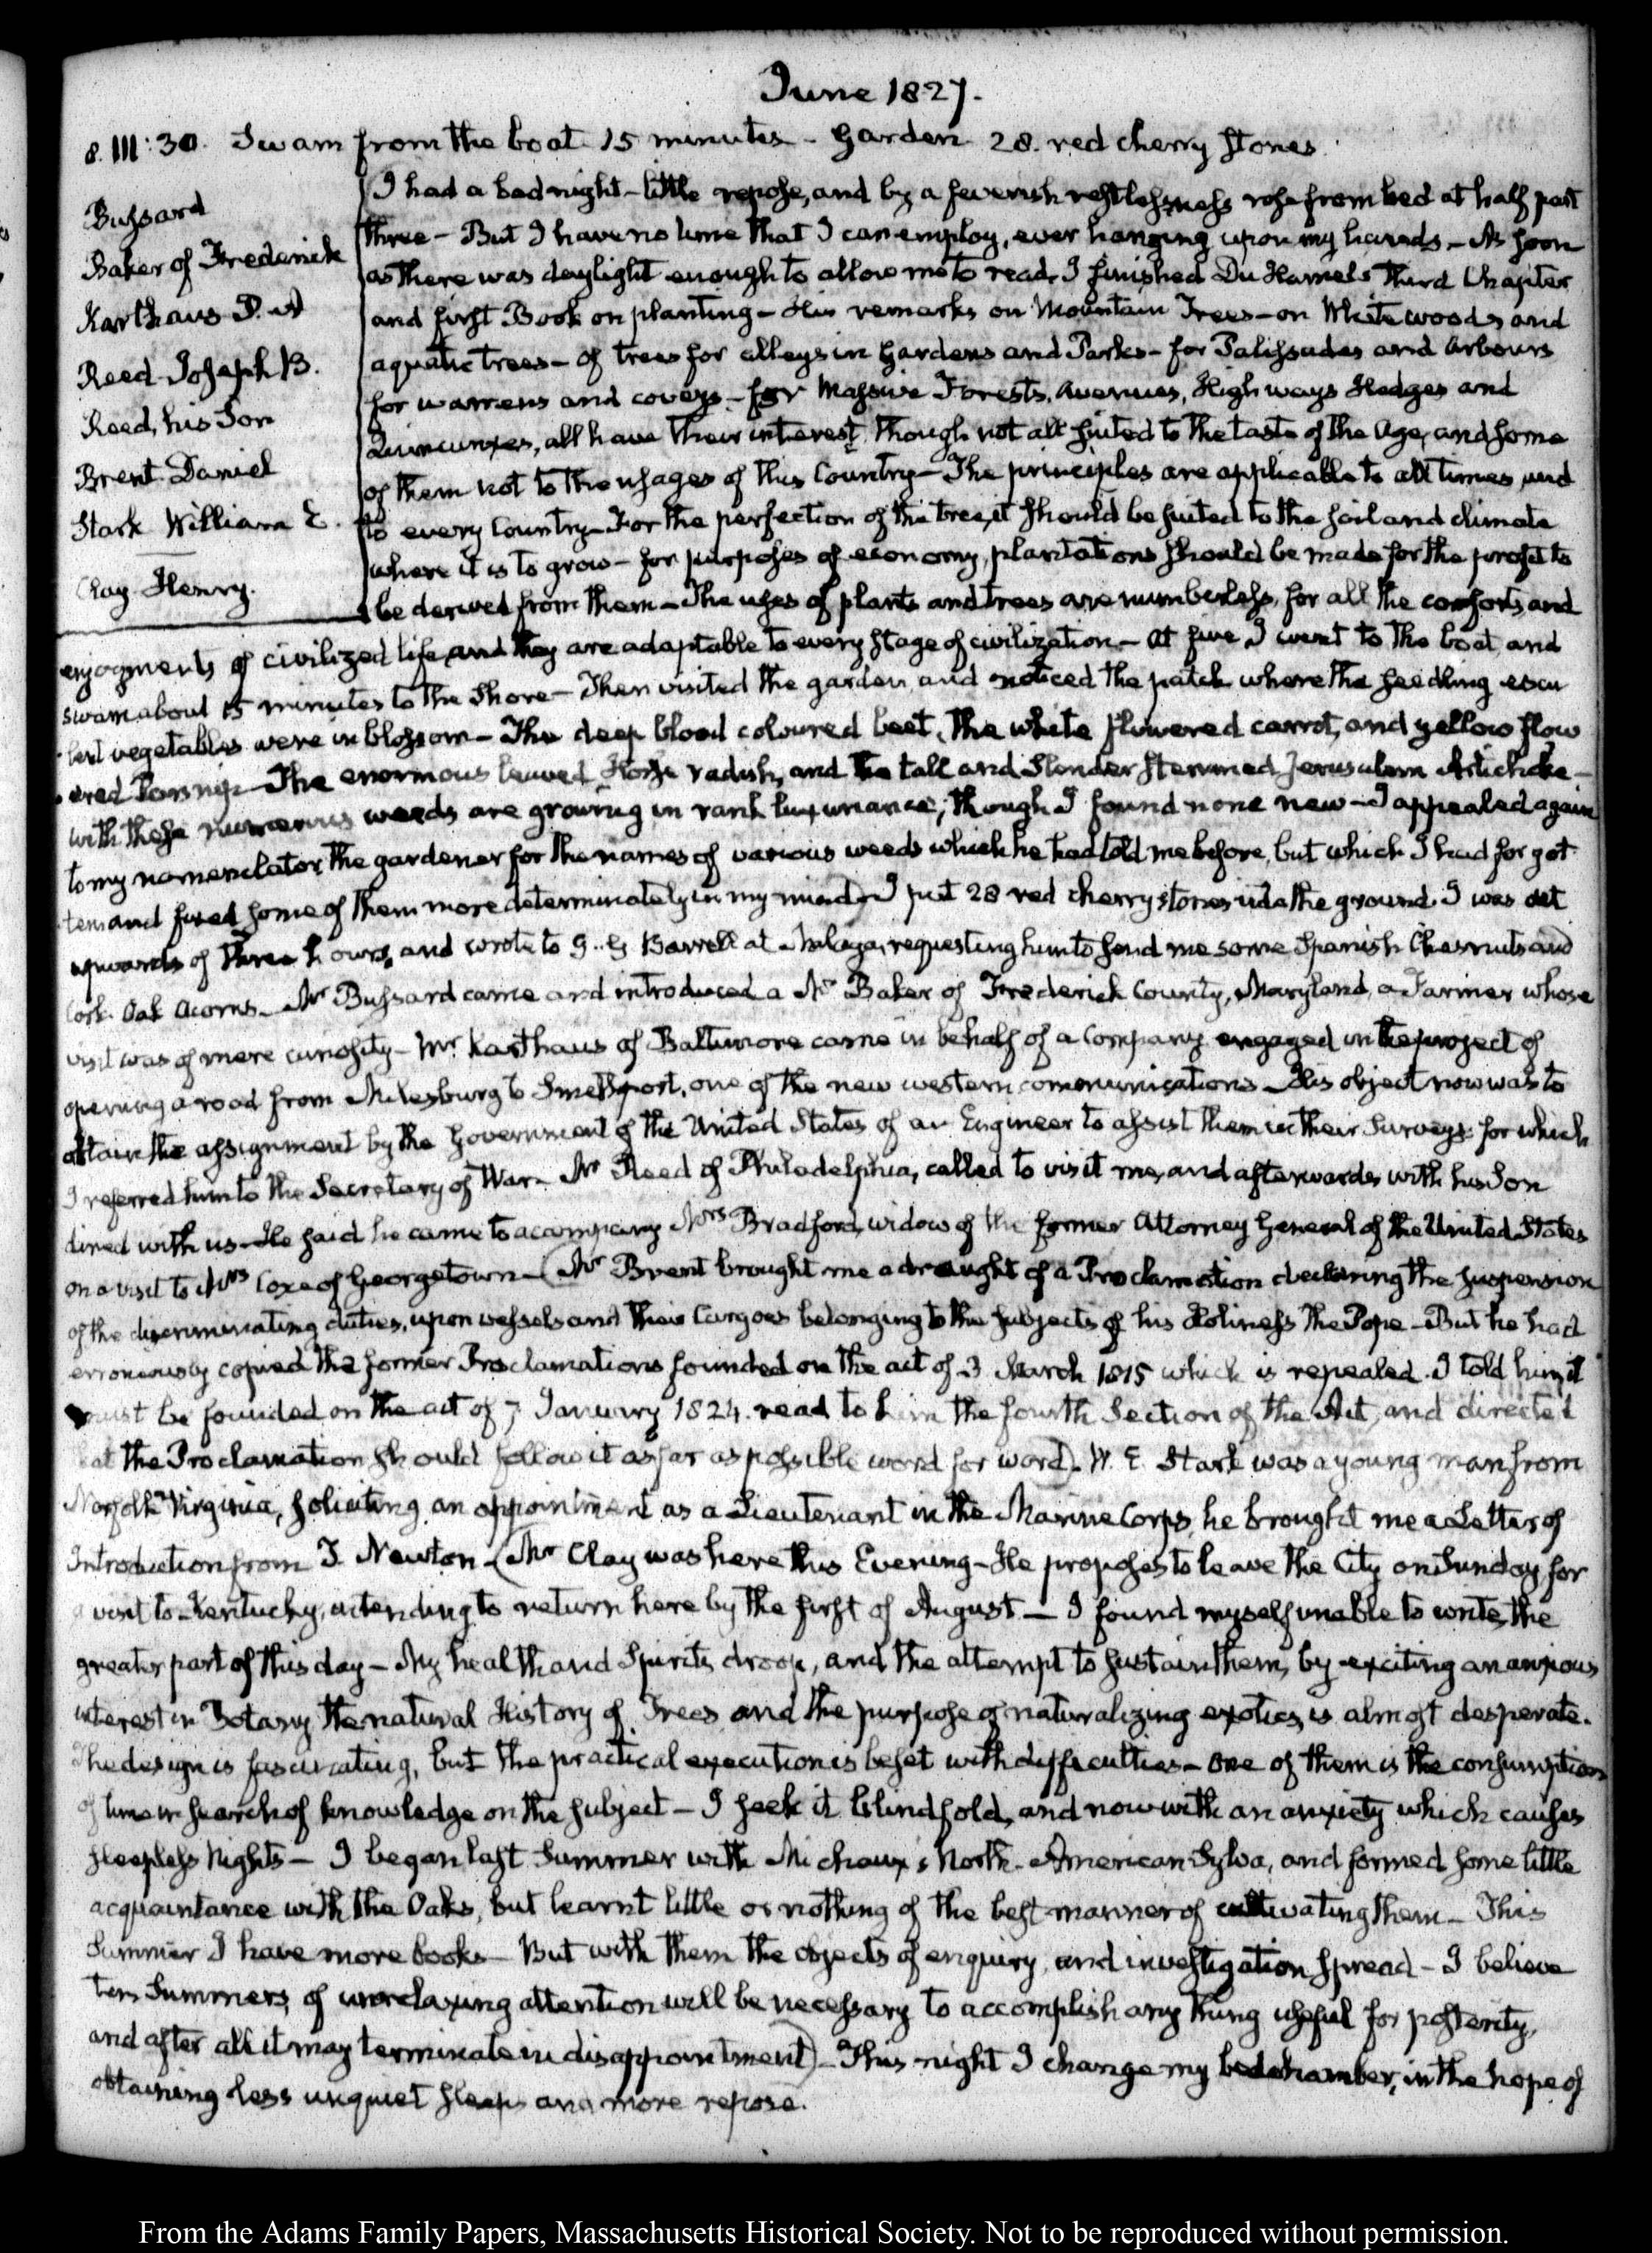 June 1827.
8. III:30. Swam from the boat 15 minutes - Garden 28. red cherry stones.
Bussard
Baker of Frederick
Karthaus P. A
Reed Joseph B.
Reed, his Son
Brent Daniel
Stark William E.
Clay Henry.
I had a bad night - little repose, and by a feverish restlessness rose from bed at half past
three - But I have no time that I can employ, ever hanging upon my hands. - As soon
as there was daylight enough to allow me to read, I finished Du Hamel's Third Chapter
and first Book on planting - His remarks on Mountain Trees - on White woods and
aquatic trees - of trees for alleys in Gardens and Parks - for Palissades and Arbours
for warrens and coveys - for Massive Forests, Avenues, High ways Hedges and
Quincunxes, all have their interest, though not all suited to the taste of the Age, and some
of them not to the usages of this Country - The principles are applicable to all times and
to every Country - For the perfection of the tree, it should be suited to the soil and climate
where it is to grow - for purposes of economy, plantations should be made for the profit to
be derived from them - The uses of plants and trees are numberless, for all the comforts and
enjoyments of civilized life, and they are adaptable to every stage of civilization - At five I went to the boat and
swam about 15 minutes to the Shore - Then visited the garden, and noticed the patch where the seedling escu
lent vegetables were in blossom - The deep blood coloured beet, the white flowered carrot, and yellow flow
ered Parsnip - The enormous leaved Horse radish, and the tall and slender stemmed Jerusalem Artichoke -
with these numerous weeds are growing in rank luxuriance; though I found none new - I appealed again
to my nomenclator the gardener for the names of various weeds which he had told me before, but which I had forgot
ten and fixed some of them more determinately in my mind) I put 28 red cherry stones into the ground. I was out
upwards of three hours, and wrote to G. G Barrell at Malaga, requesting him to send me some Spanish Chesnuts and
Cork Oak Acorns. Mr Bussard came and introduced a Mr Baker of Frederick County, Maryland, a Farmer whose
visit was of mere curiosity - Mr. Karthaus of Baltimore came in behalf of a Company engaged in the project of
opening a road from Milesburg to Smethport, one of the new western communications - His object now was to
obtain the assignment by the Government of the United States of an Engineer to assist them in their Surveys for which
I referred him to the Secretary of War - Mr Reed of Philadelphia, called to visit me, and afterwards with his Son
dined with us - He said he came to accompany Mrs Bradford, widow of the former Attorney General of the United States
on a visit to Mrs Coxe of Georgetown - (Mr Brent brought me a draught of a Proclamation declaring the suspension
of the discriminating duties, upon vessels and their Cargoes belonging to the subjects of his Holiness the Pope - But he had
erroniously copied the former Proclamations founded on the act of 3 March 1815 which is repealed. I told him it
must be founded on the act of 7 January 1824. read to him the fourth Section of the Act, and directed
that the Proclamation should follow it as far as possible word for word). W. E. Stark was a young man from
Norfolk Virginia, soliciting an appointment as a Lieutenant in the Marine Corps, he brought me a Letter of
Introduction from T. Newton - (Mr Clay was here this Evening - He proposes to leave the City on Sunday, for
a visit to Kentucky, intending to return here by the first of August - I found myself unable to write, the
greater part of this day - My health and Spirits droop, and the attempt to sustain them, by exciting an anxious
interest in Botany the natural History of Trees and the purpose of naturalizing exotics, is almost desperate.
The design is fascinating, but the practical execution is beset with difficulties - one of them is the consumption
of time in search of knowledge on the subject - I seek it blindfold, and now with an anxiety which causes
sleepless Nights - I began last Summer with Michaux's North-American Sylva, and formed some little
acquaintance with the Oaks, but learnt little or nothing of the best manner of cultivating them - This
Summer I have more books - But with them the objects of enquiry, and investigation spread - I believe
ten Summers, of unrelaxing attention will be necessary to accomplish any thing useful for posterity,
and after all it may terminate in disappointment) - This night I change my bedchamber, in the hope of
obtaining less unquiet sleep, and more repose.
From the Adams Family Papers, Massachusetts Historical Society. Not to be reproduced without permission.